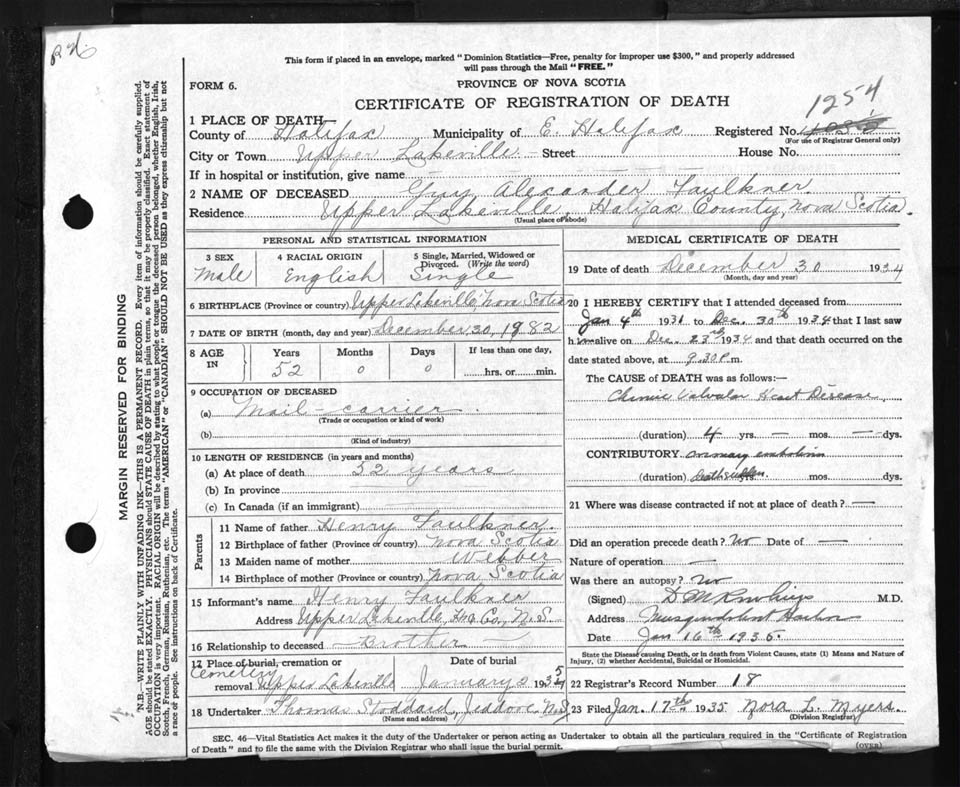 This form if placed in an envelope, marked "Dominion Statistics—Free, penalty for improper use $300," and properly addressed
will pass through the Mail "FREE."
FORM 6.
PROVINCE OF NOVA SCOTIA
CERTIFICATE OF REGISTRATION OF DEATH
1254
1 PLACE OF DEATH—
County of Halifax Municipality of E. Halifax Registered No.
(For use of Registrar General only)
City or Town Upper Lakeville – Street House No.
If in hospital or institution, give name
2 NAME OF DECEASED Guy Alexander Faulkner
Residence Upper Lakeville, Halifax County, Nova Scotia.
(Usual place of abode)
PERSONAL AND STATISTICAL INFORMATION
3 SEX 4 RACIAL ORIGIN 5 Single, Married, Widowed or Divorced. (Write the word)
Male English Single
6 BIRTHPLACE (Province or country) Upper Lakeville, Nova Scotia
7 DATE OF BIRTH (month, day and year) December, 30, 1882
8 AGE IN Years Months Days If less than one day,
52 0 0 hrs. or min.
9 OCCUPATION OF DECEASED
(a) Mail-carrier
(Trade or occupation or kind of work)
(b)
(Kind of industry)
10 LENGTH OF RESIDENCE (in years and months)
(a) At place of death 52 years
(b) In province
(c) In Canada (if an immigrant)
Parents
11 Name of father Henry Faulkner.
12 Birthplace of father (Province or country) Nova Scotia
13 Maiden name of mother Webber
14 Birthplace of mother (Province or country) Nova Scotia
15 Informant's name Henry Faulkner
Address Upper Lakeville, Hfx Co., N.S.
16 Relationship to deceased Brother
17 Place of burial, cremation or removal Date of burial
Cemetery Upper Lakeville January 2 1935
18 Undertaker Thomas Stoddard, Jeddore N.S.
(Name and address)
MEDICAL CERTIFICATE OF DEATH
19 Date of death December 30 1934
(Month, day and year)
20 I HEREBY CERTIFY that I attended deceased from
Jan 4th 1931 to Dec. 30th 1934 that I last saw
him alive on Dec. 23rd 1934 and that death occurred on the
date stated above, at 9.30 P.m.
The CAUSE of DEATH was as follows:—
Chronic Valvular Heart Disease
(duration) 4 yrs. — mos. — dys.
CONTRIBUTORY embolism
(duration) Death sudden. mos. dys.
21 Where was disease contracted if not at place of death? —
Did an operation precede death? No Date of —
Nature of operation —
Was there an autopsy? No
(Signed) D M Rowlings M.D.
Address Musquodoboit Harbor
Date Jan 16th 1935.
State the Disease causing Death, or in death from Violent Causes, state (1) Means and Nature of
Injury, (2) whether Accidental, Suicidal or Homicidal.
22 Registrar's Record Number 18
23 Filed Jan. 17th 1935 Nora L. Myers.
(Division Registrar)
SEC. 46—Vital Statistics Act makes it the duty of the Undertaker or person acting as Undertaker to obtain all the particulars required in the "Certificate of Registration
of Death" and to file the same with the Division Registrar who shall issue the burial permit.
(OVER)
MARGIN RESERVED FOR BINDING
N.B.—WRITE PLAINLY WITH UNFADING INK—THIS IS A PERMANENT RECORD. Every item of information should be carefully supplied.
AGE should be stated EXACTLY. PHYSICIANS should STATE CAUSE OF DEATH in plain terms, so that it may be properly classified. Exact statement of
OCCUPATION is very important. RACIAL ORIGIN will be described by stating to what people or tongue the deceased person belonged, whether English, Irish,
Scotch, French, German, Russian, Ruthenian, etc. The terms "AMERICAN" or "CANADIAN" SHOULD NOT BE USED as they express citizenship but not
a race or people. See instructions on back of Certificate.